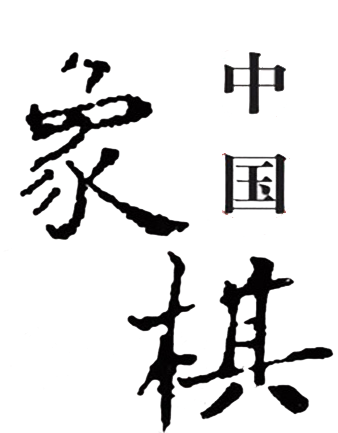 中国
象棋